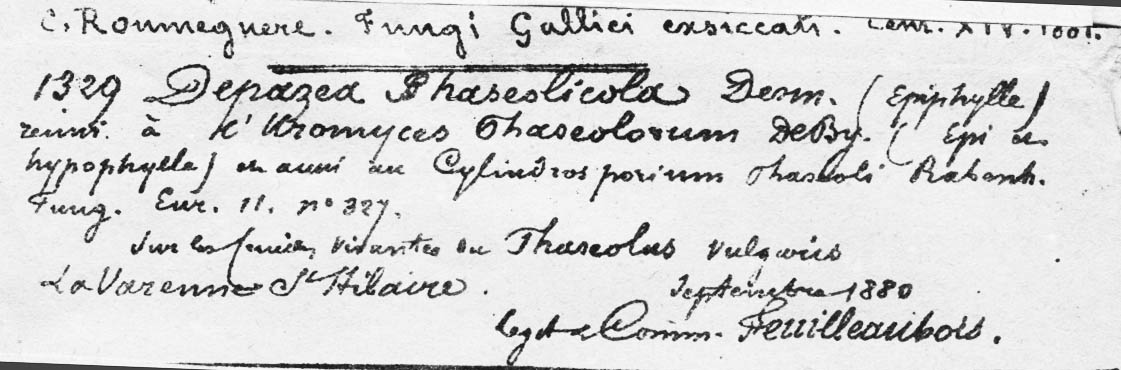 C. Roumeguere. Fungi Gallici exsiccati. Cent. XIV. 1001.
1329 Depazea Phaseolicola Desm. (Epiphylle)
reuni à l'Uromyces Phaseolorum DeBy. (Epi et
hypophylle) et aussi au Cylindrosporium Phaseoli Rabenh.
Fung. Eur. 11. no 327.
Sur les feuilles vivantes du Phaseolus vulgaris
La Varenne St Hilaire. Septembre 1880
legit & Comm. Feuilleaubois.